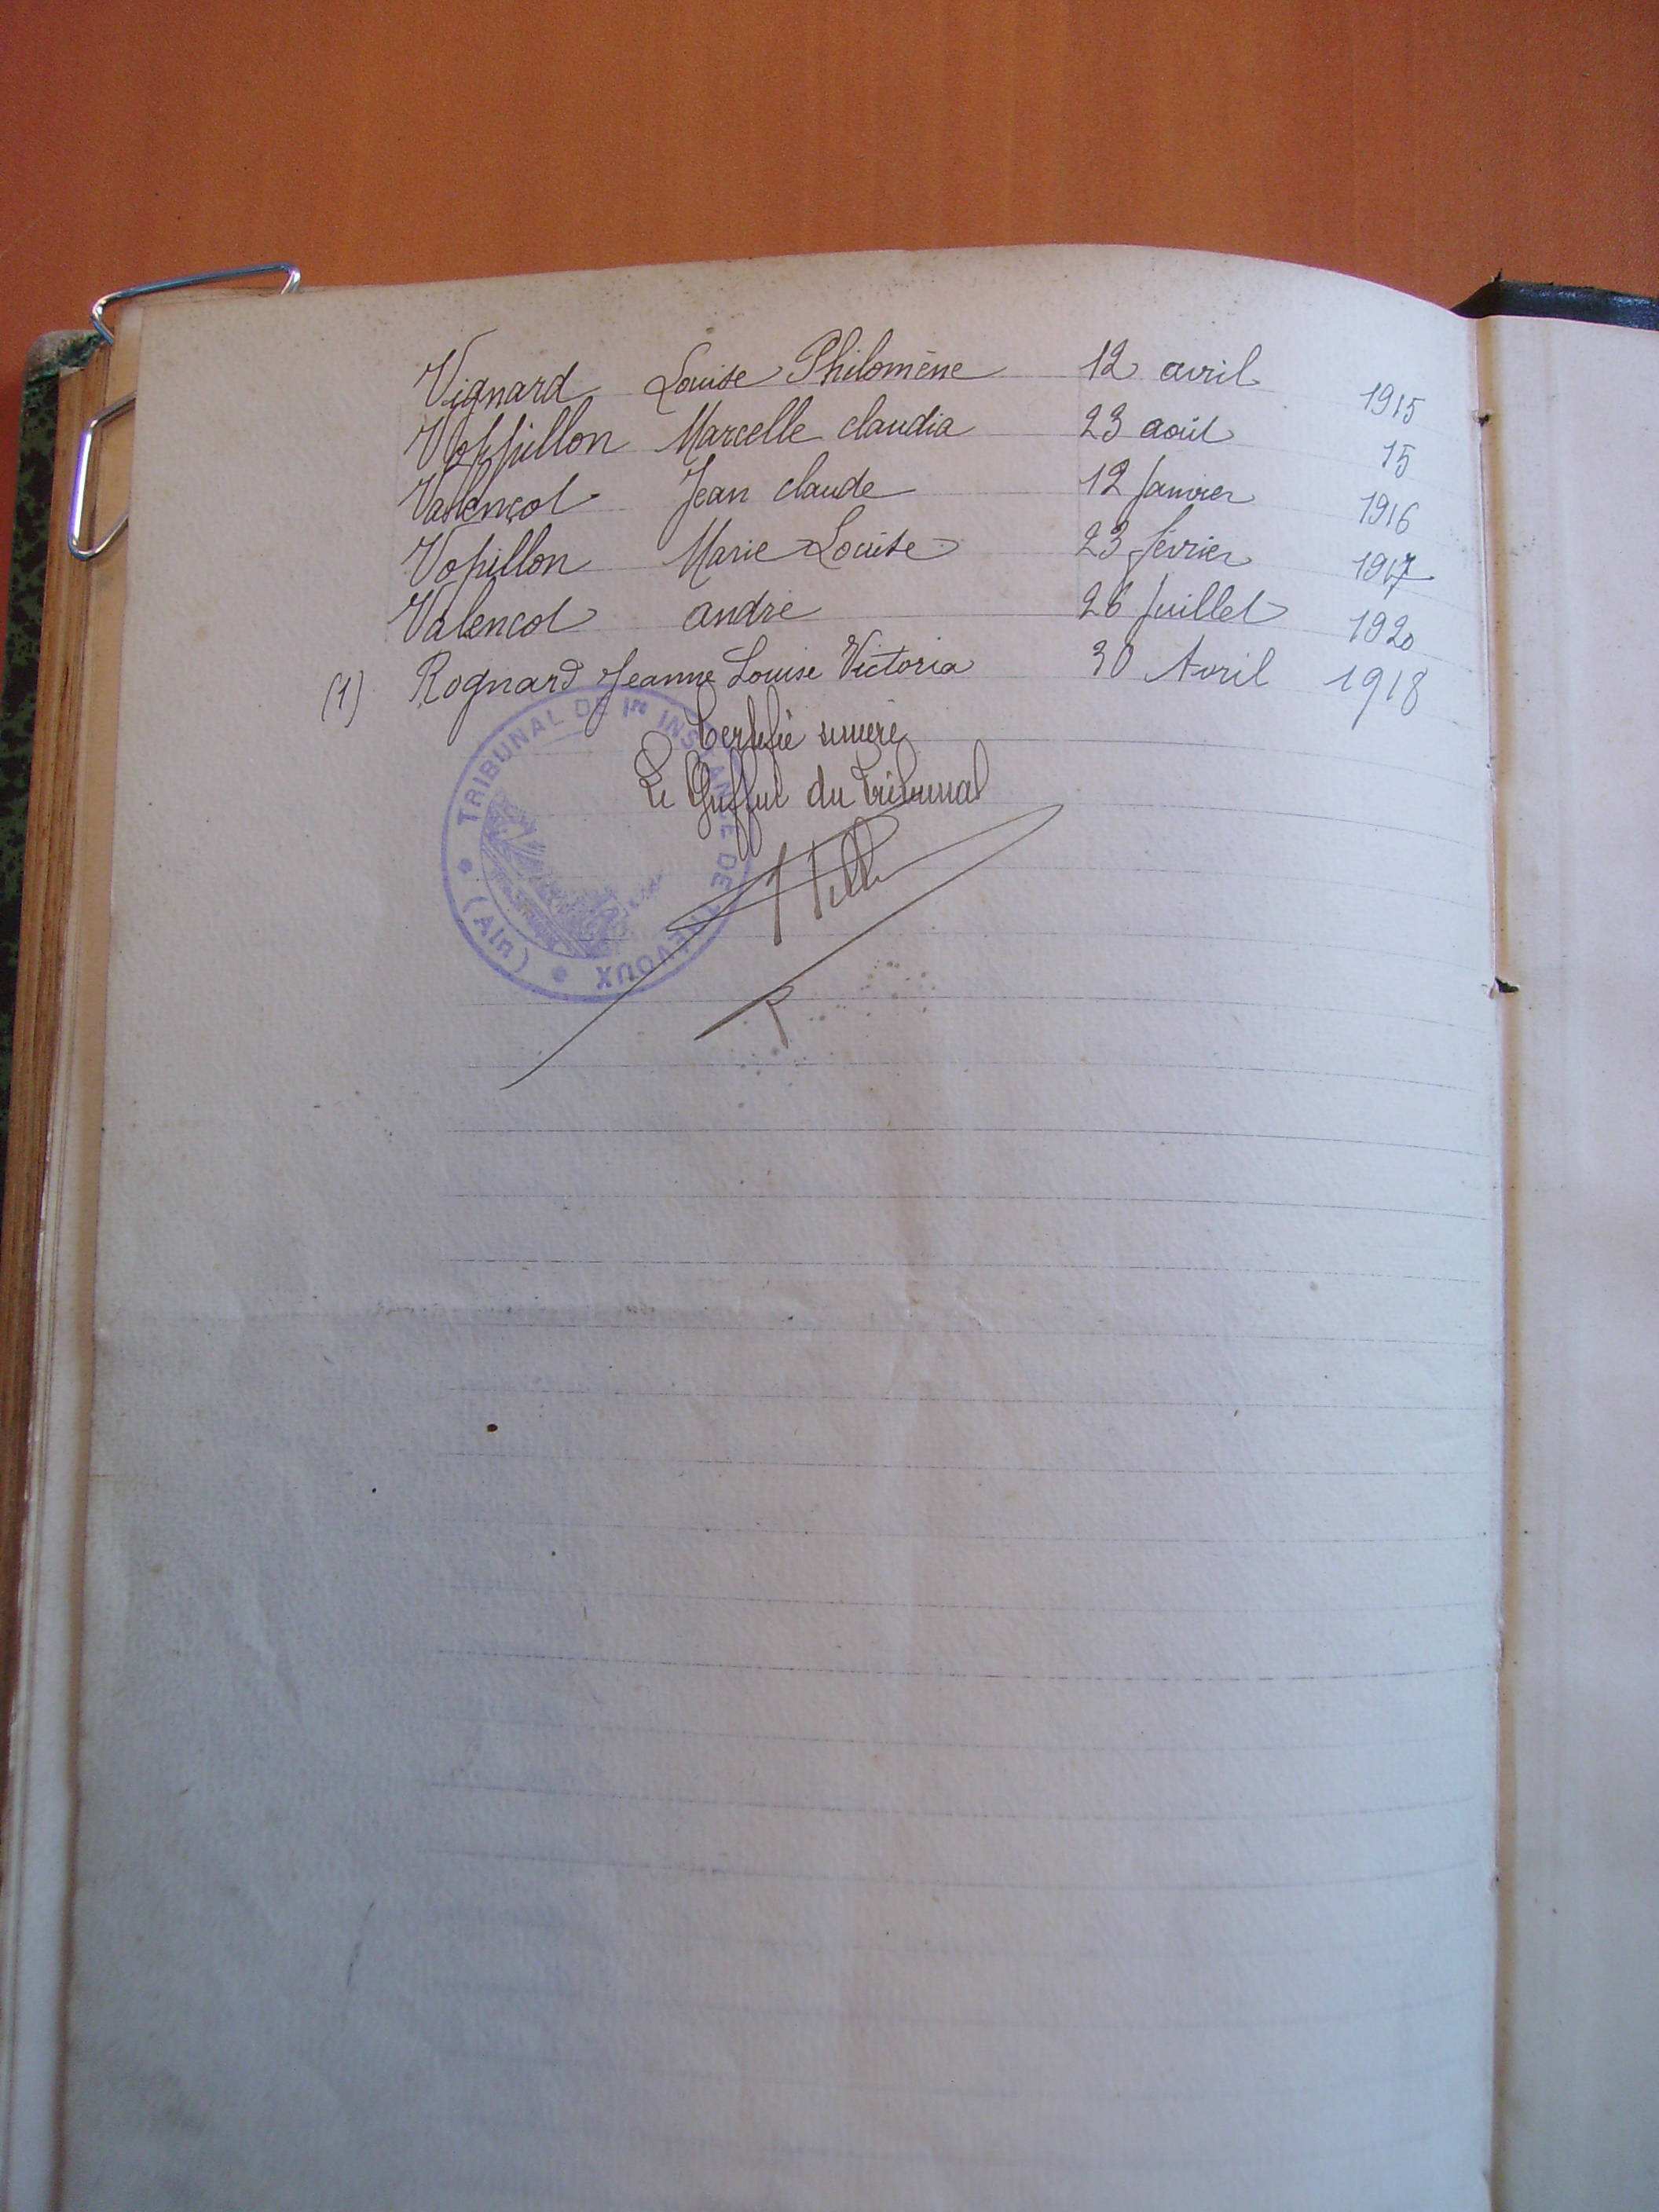 Vignard Louise Philomène 12 avril 1915
Voppillon Marcelle claudia 23 août 15
Valençot Jean claude 12 Janvier 1916
Vopillon Marie Louise 23 février 1917
Valencot andré 26 Juillet 1920
(1) Rognard Jeanne Louise Victoria 30 Avril 1918
Certifié sincère
Le Greffier du Tribunal
TRIBUNAL DE 1re INSTANCE DE TREVOUX
(Ain)